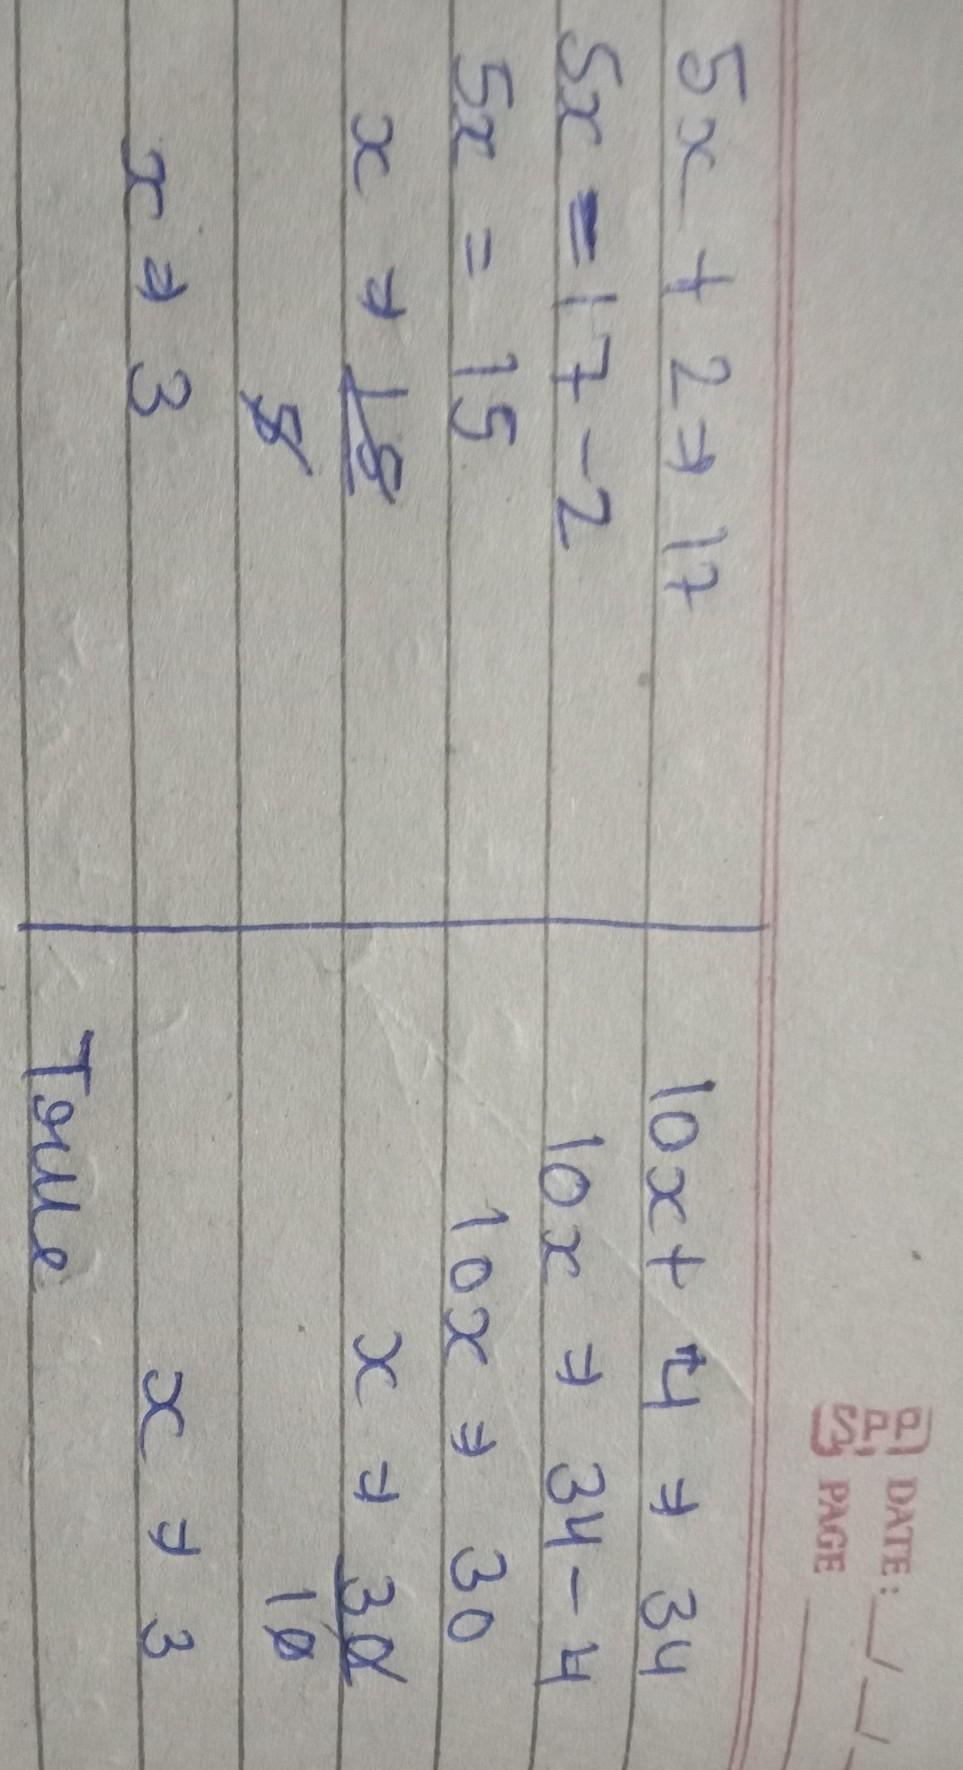 SPP DATE: __/__/__
PAGE ____
5x + 2 ⇒ 17
5x = 17 - 2
5x = 15
x ⇒ 15
5
x ⇒ 3
10x + 4 ⇒ 34
10x ⇒ 34 - 4
10x ⇒ 30
x ⇒ 30
10
x ⇒ 3
True